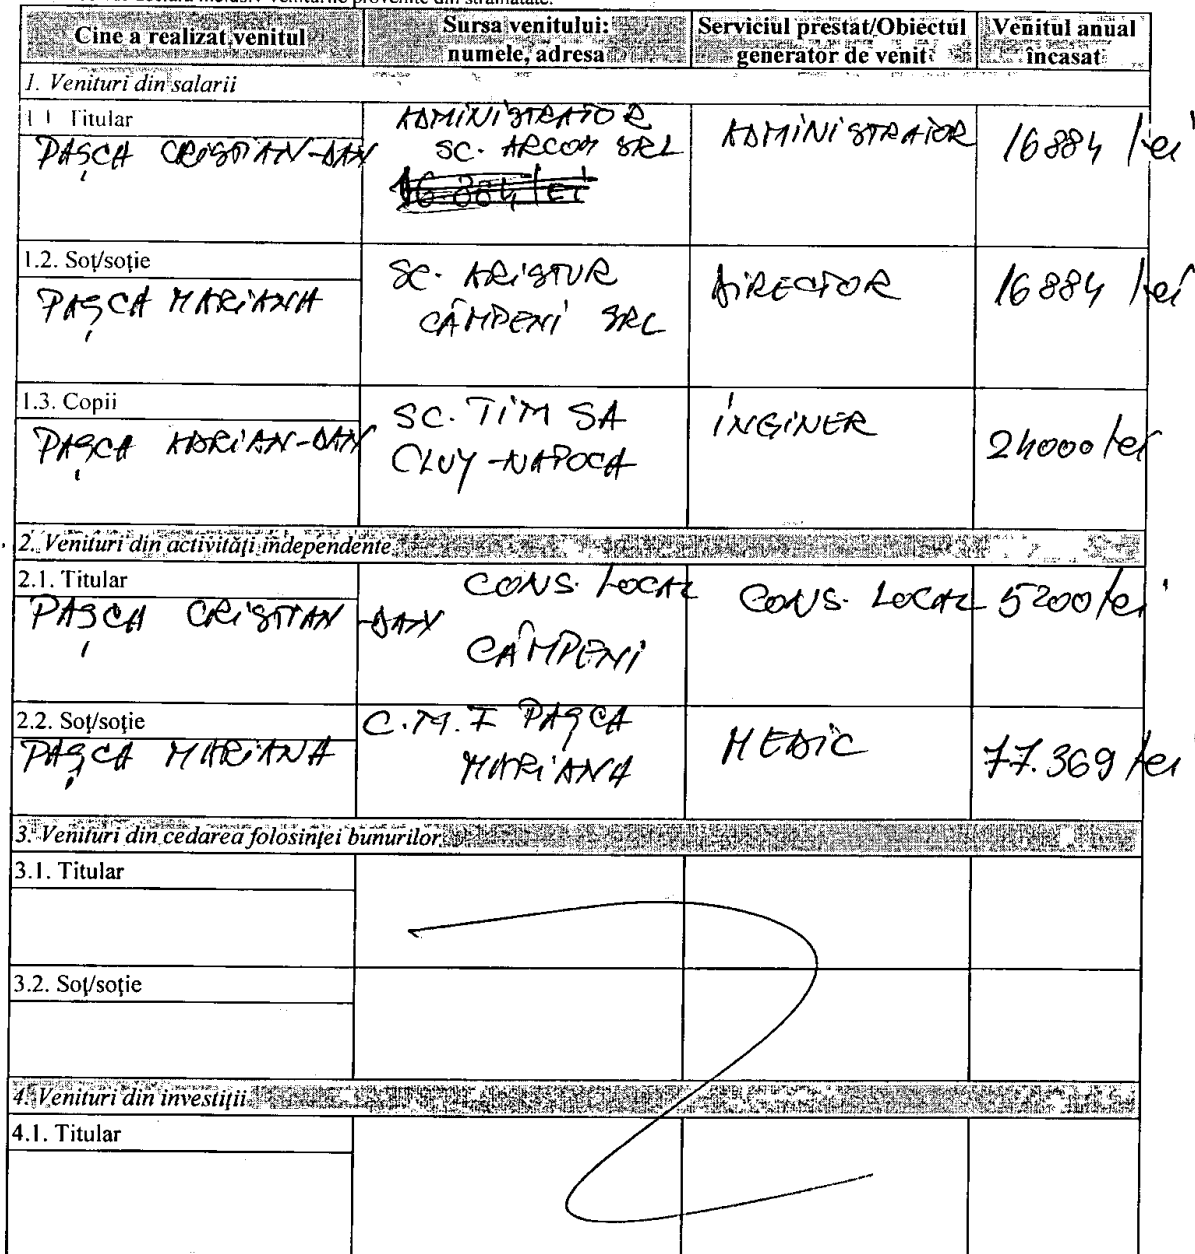 Cine a realizat venitul
Sursa venitului:
numele, adresa
Serviciul prestat/Obiectul
generator de venit
Venitul anual
încasat
1. Venituri din salarii
1.1 Titular
PAȘCA CRISTIAN-DAN
ADMINISTRATOR
SC. ARCOM SRL
16.884 lei
ADMINISTRATOR
16884 lei
1.2. Soț/soție
PAȘCA MARIANA
SC. ARISTUR
CÂMPENI SRL
DIRECTOR
16884 lei
1.3. Copii
PAȘCA ADRIAN-DAN
SC. TIM SA
CLUY-NAPOCA
INGINER
24000 lei
2. Venituri din activități independente
2.1. Titular
PAȘCA CRISTIAN-DAN
CONS. LOCAL
CÂMPENI
CONS. LOCAL
5200 lei
2.2. Soț/soție
PAȘCA MARIANA
C.M.I PAȘCA
MARIANA
MEDIC
77.369 lei
3. Venituri din cedarea folosinței bunurilor
3.1. Titular
3.2. Soț/soție
4. Venituri din investiții
4.1. Titular